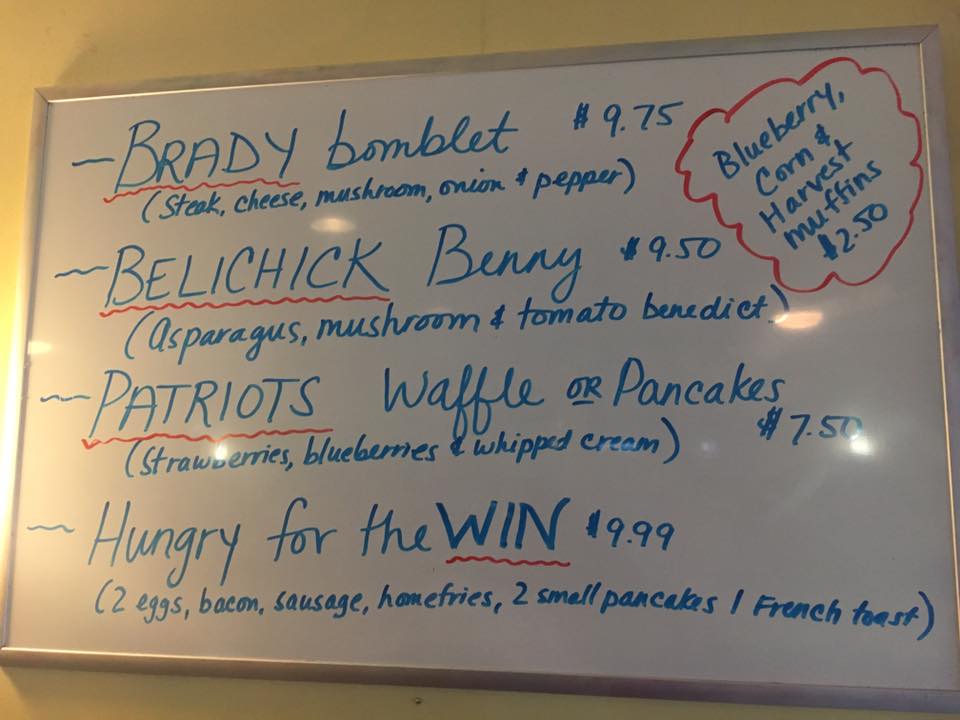 ~ BRADY bomblet $9.75
(Steak, cheese, mushroom, onion & pepper)
~ BELICHICK Benny $9.50
(Asparagus, mushroom & tomato benedict.)
~ PATRIOTS Waffle OR Pancakes
$7.50
(Strawberries, blueberries & whipped cream)
~ Hungry for the WIN $9.99
(2 eggs, bacon, sausage, homefries, 2 small pancakes / French toast)
Blueberry,
Corn &
Harvest
muffins
$2.50